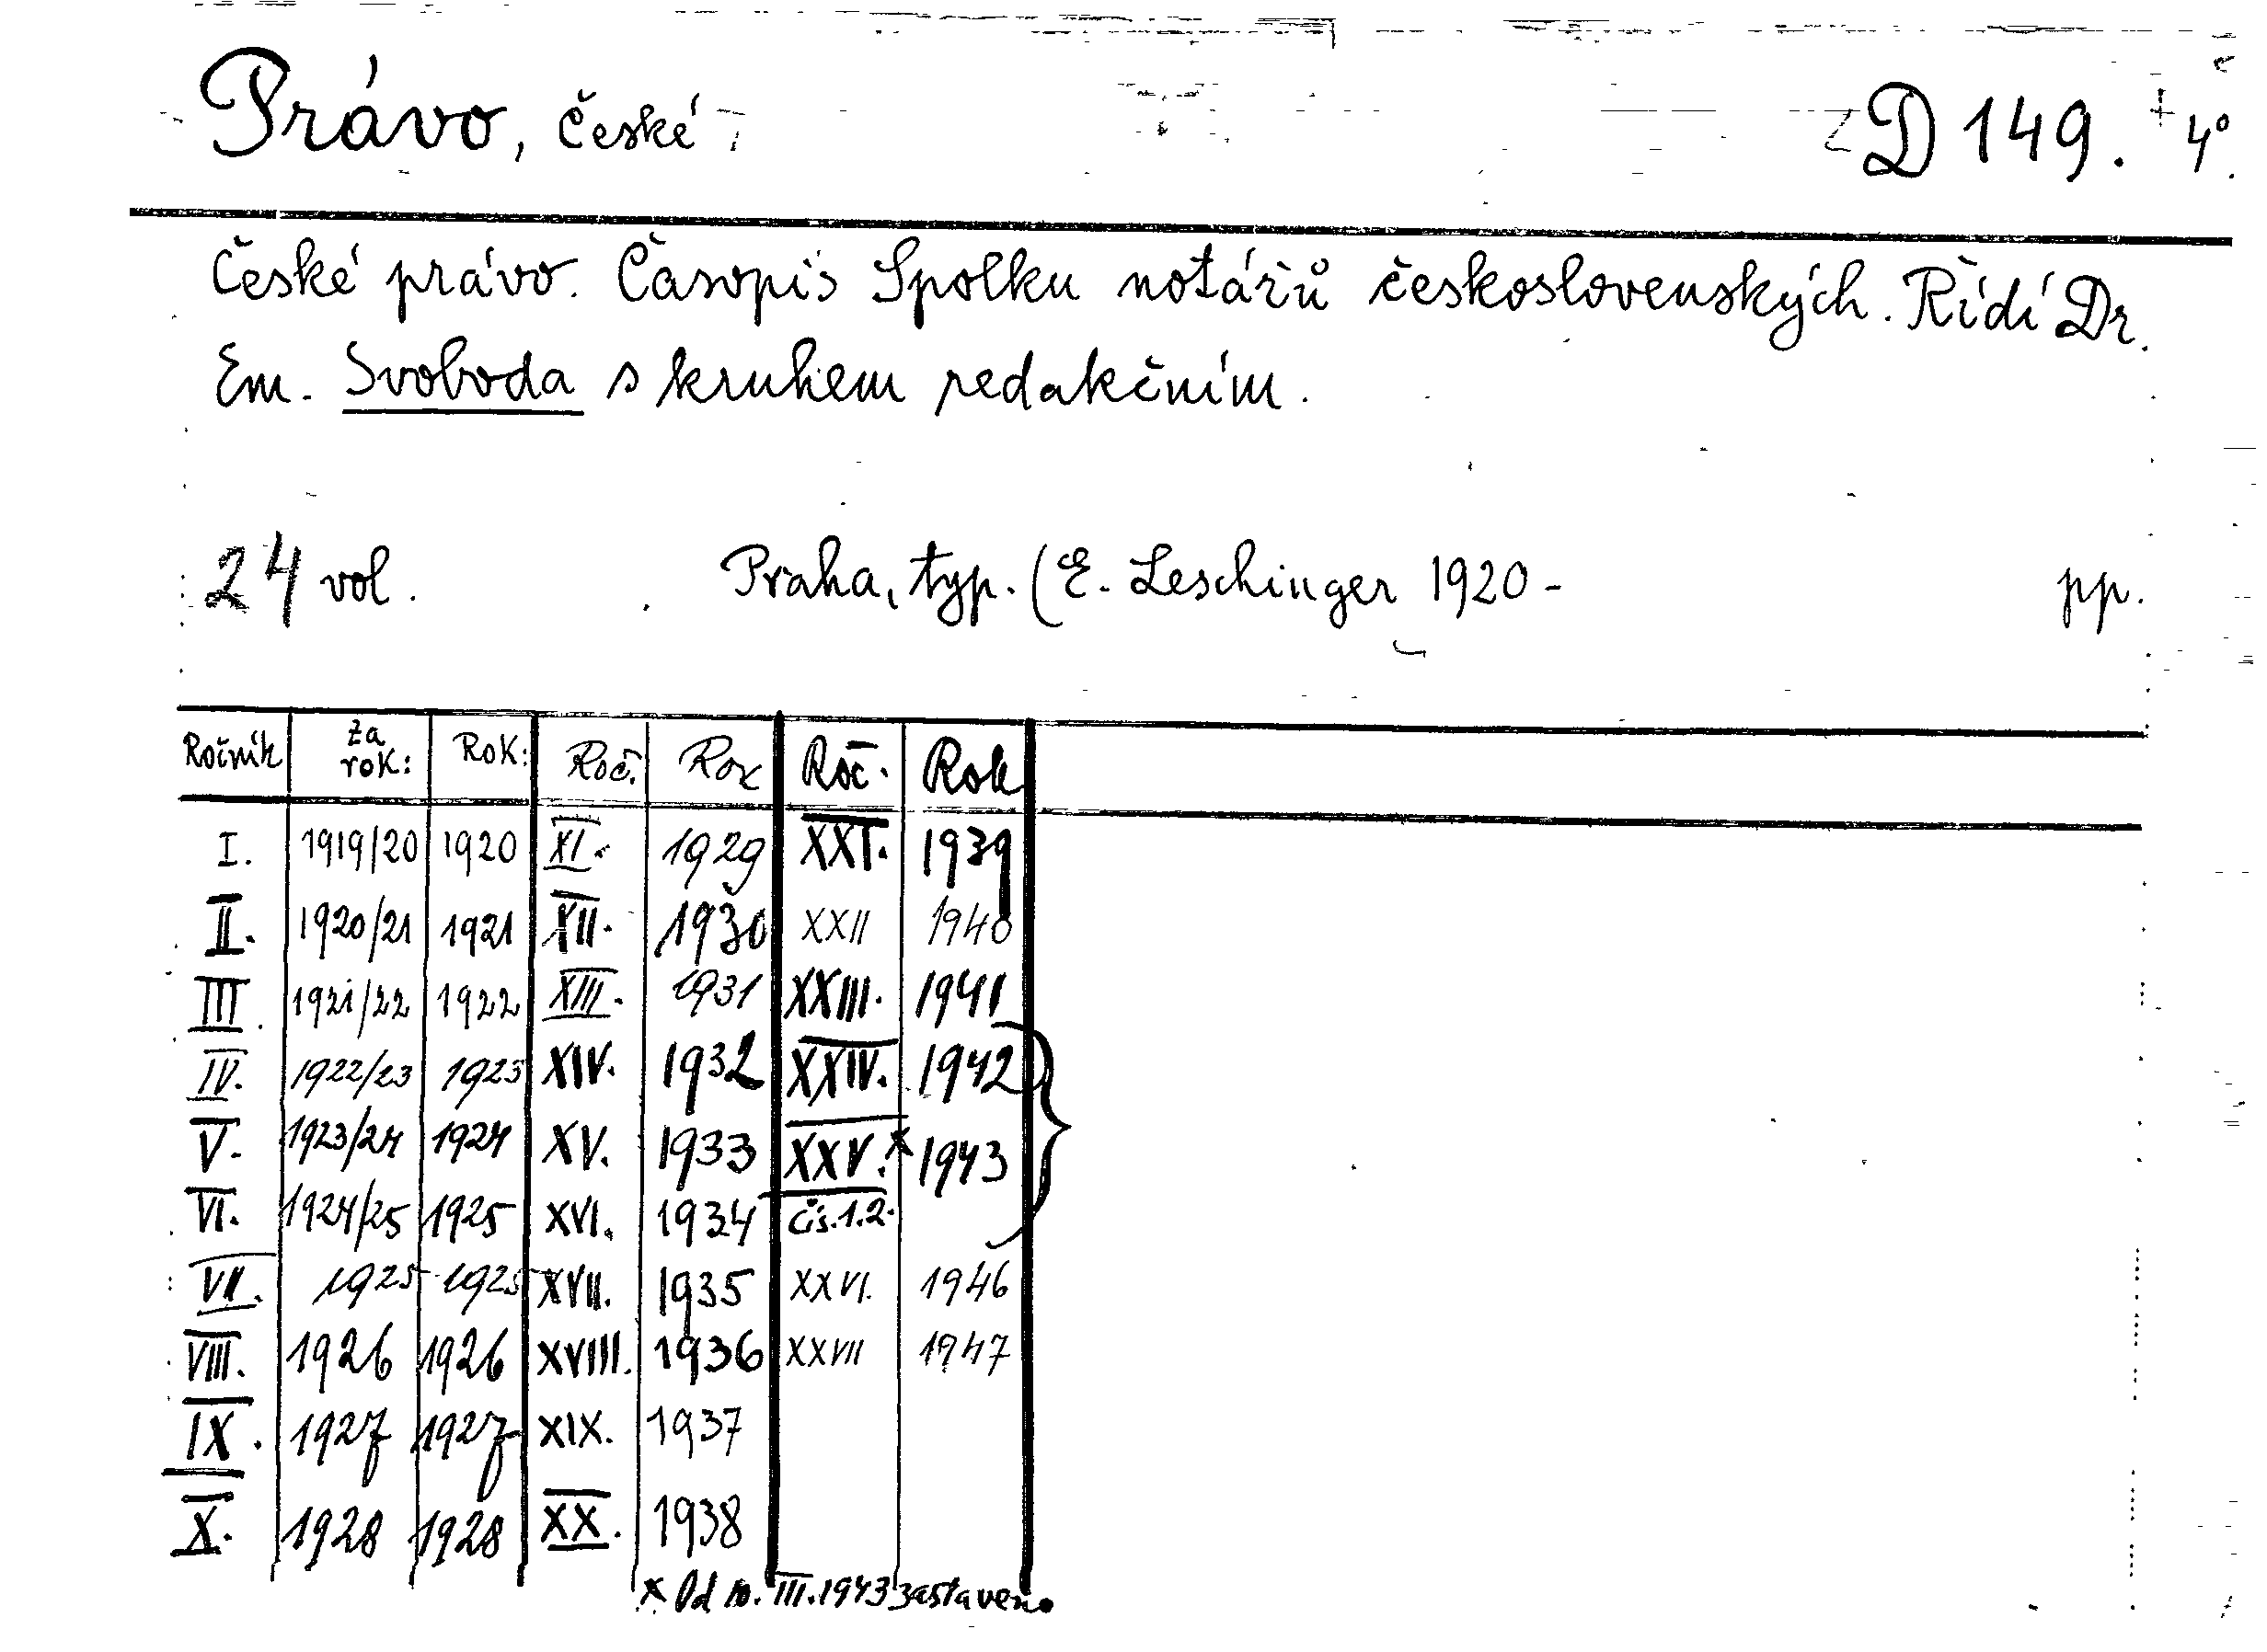 Právo, České D 149. + 4°.
České právo. Časopis Spolku notářů československých. Řídí Dr.
Em. Svoboda s kruhem redakčním.
24 vol. Praha, typ. (E. Leschinger 1920 - pp.
Ročník za rok: Rok: Roč. Rok Roč. Rok
I. 1919/20 1920 XI. 1929 XXI. 1939
II. 1920/21 1921 XII. 1930 XXII 1940
III. 1921/22 1922 XIII. 1931 XXIII. 1941
IV. 1922/23 1923 XIV. 1932 XXIV. 1942
V. 1923/24 1924 XV. 1933 XXV. x 1943
VI. 1924/25 1925 XVI. 1934 čís. 1.2.
VII. 1925 1925 XVII. 1935 XXVI. 1946
VIII. 1926 1926 XVIII. 1936 XXVII 1947
IX. 1927 1927 XIX. 1937
X. 1928 1928 XX. 1938
x Od 10. III. 1943 zastaveno